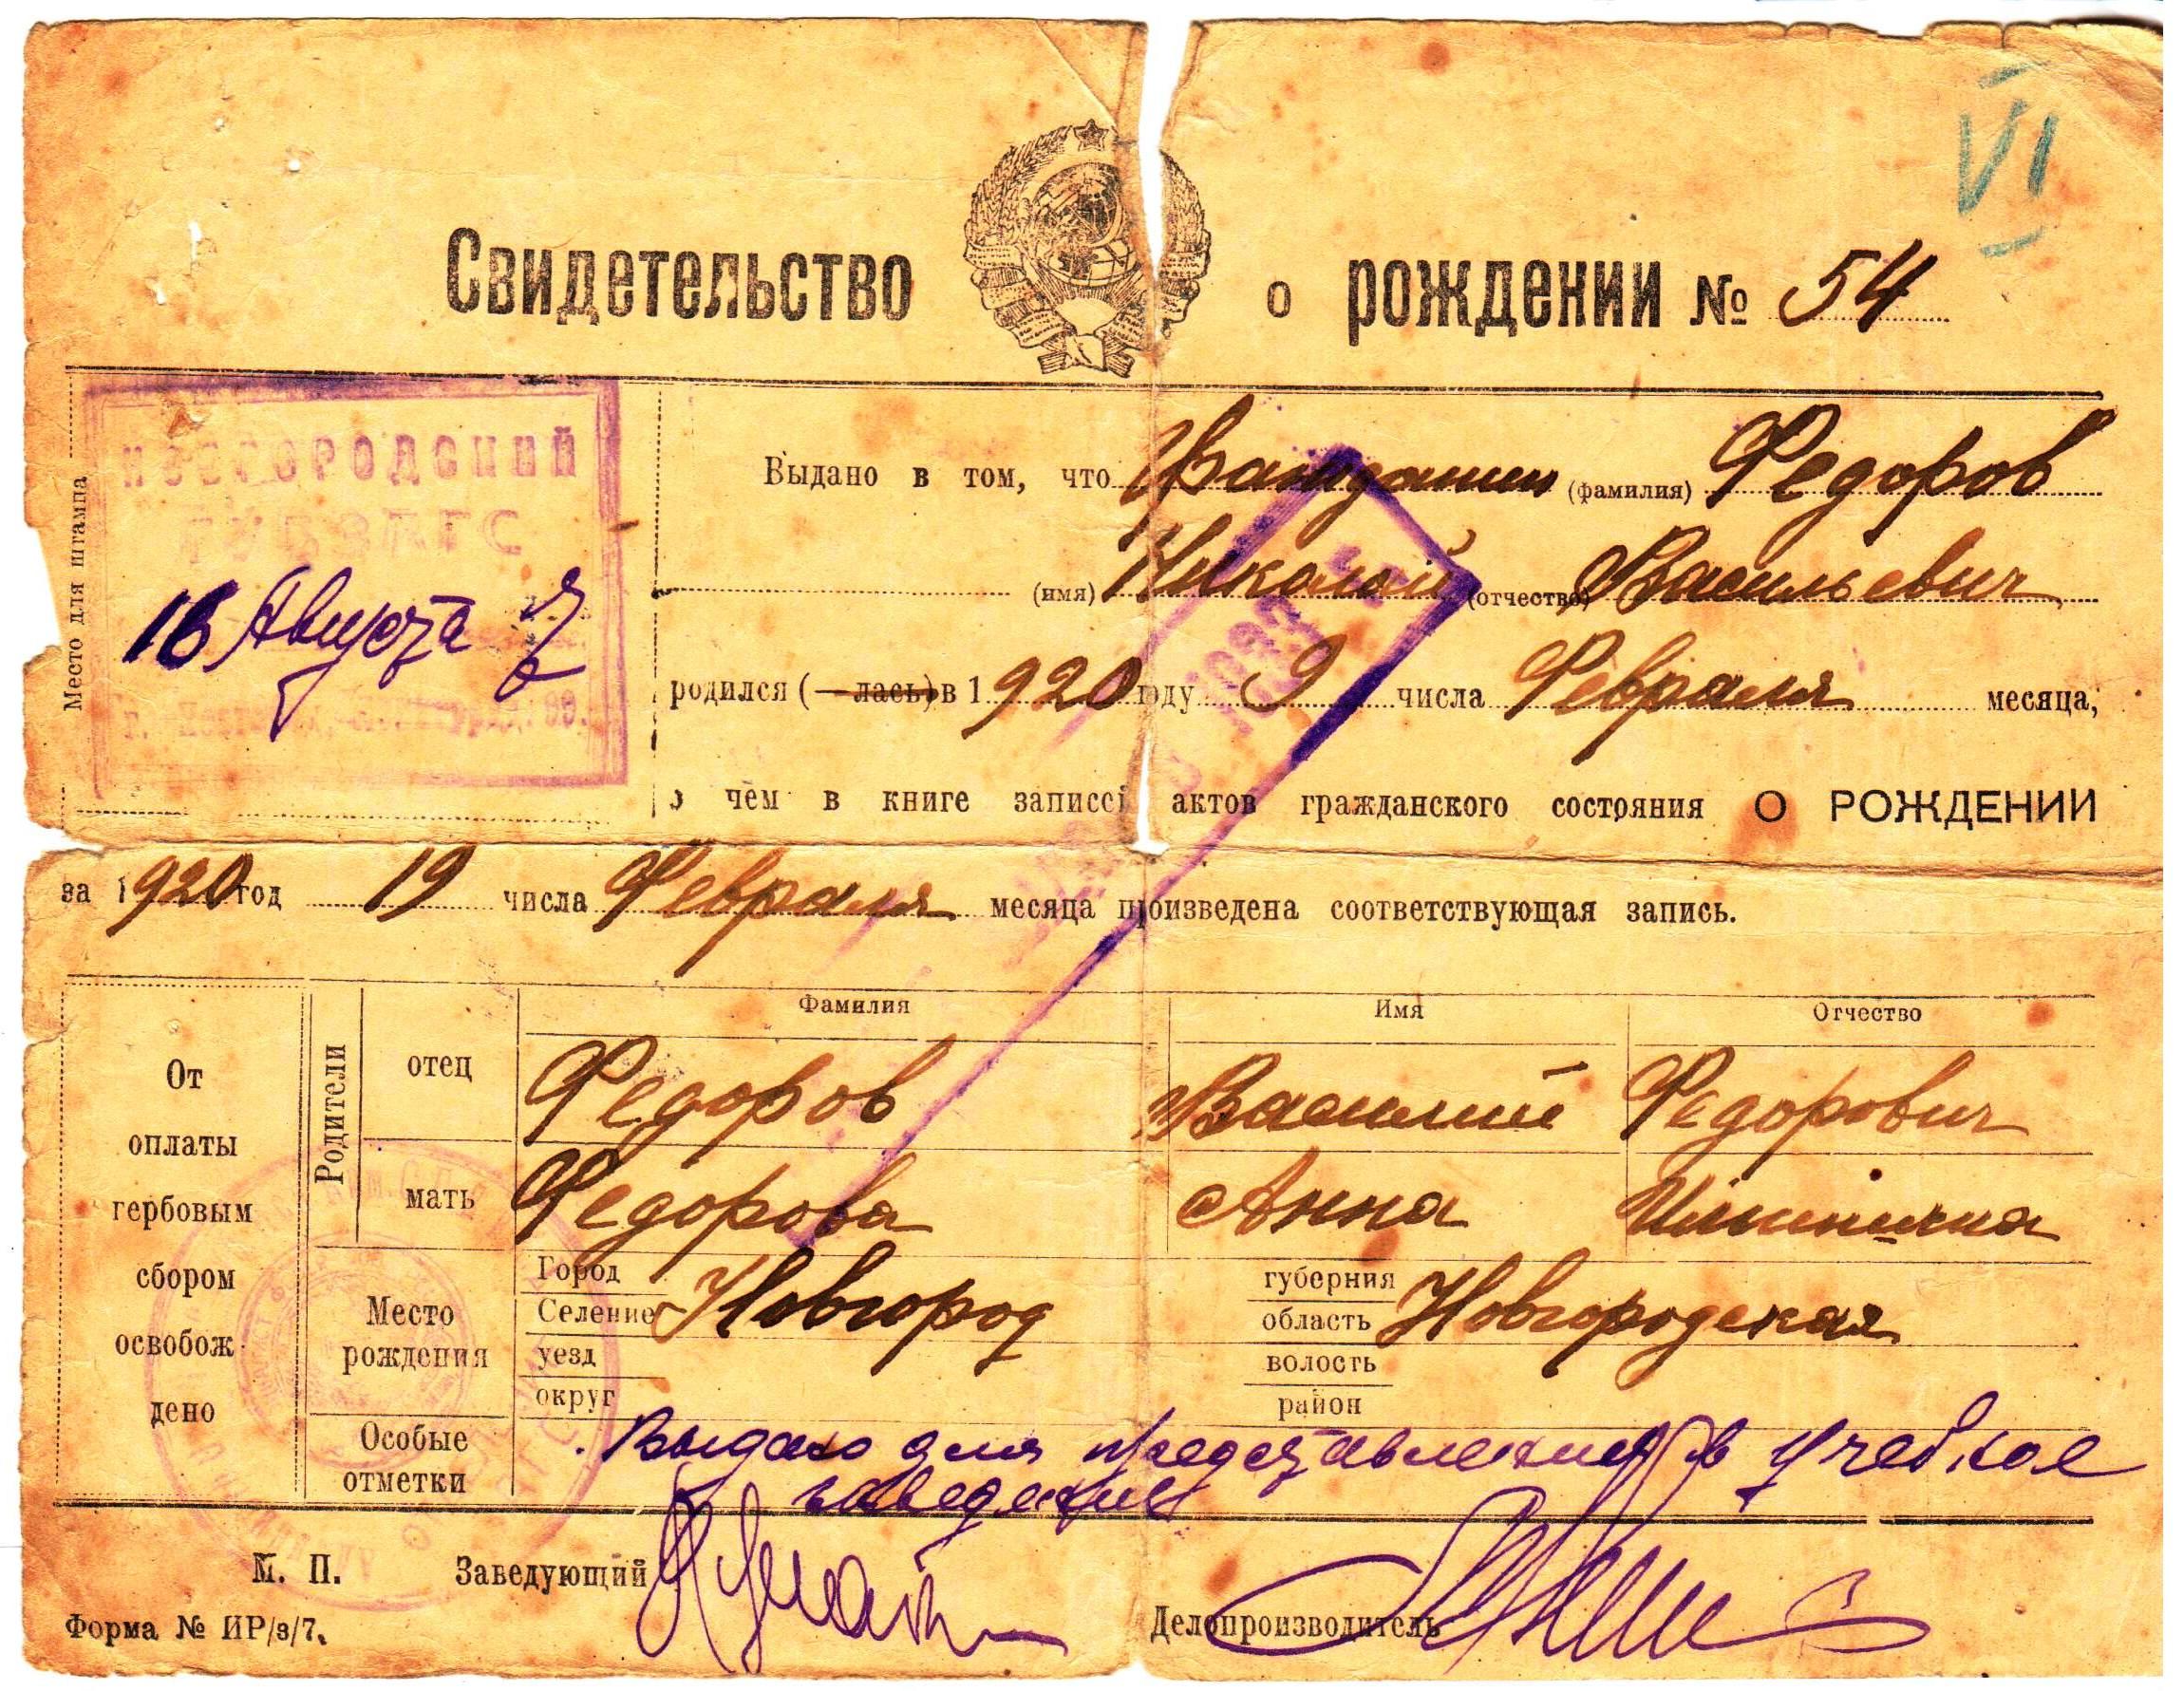 VI
Свидетельство о рождении № 54
Место для штампа
НОВГОРОДСКИЙ
ГУБЗАГС
16 Августа
Выдано в том, что Гражданин (фамилия) Федоров
(имя) Николай (отчество) Васильевич
родился (—лась) в 1920 году 9 числа Февраля месяца,
о чем в книге записей актов гражданского состояния О РОЖДЕНИИ
за 1920 год 19 числа Февраля месяца произведена соответствующая запись.
От оплаты гербовым сбором освобождено
Родители
Фамилия Имя Отчество
отец Федоров Василий Федорович
мать Федорова Анна
Место рождения
Город
Селение Новгород
уезд
округ
губерния
область Новгородская
волость
район
Особые отметки
Выдано для представления в учебное
заведение
М. П. Заведующий
Делопроизводитель
Форма № ИР/з/7.